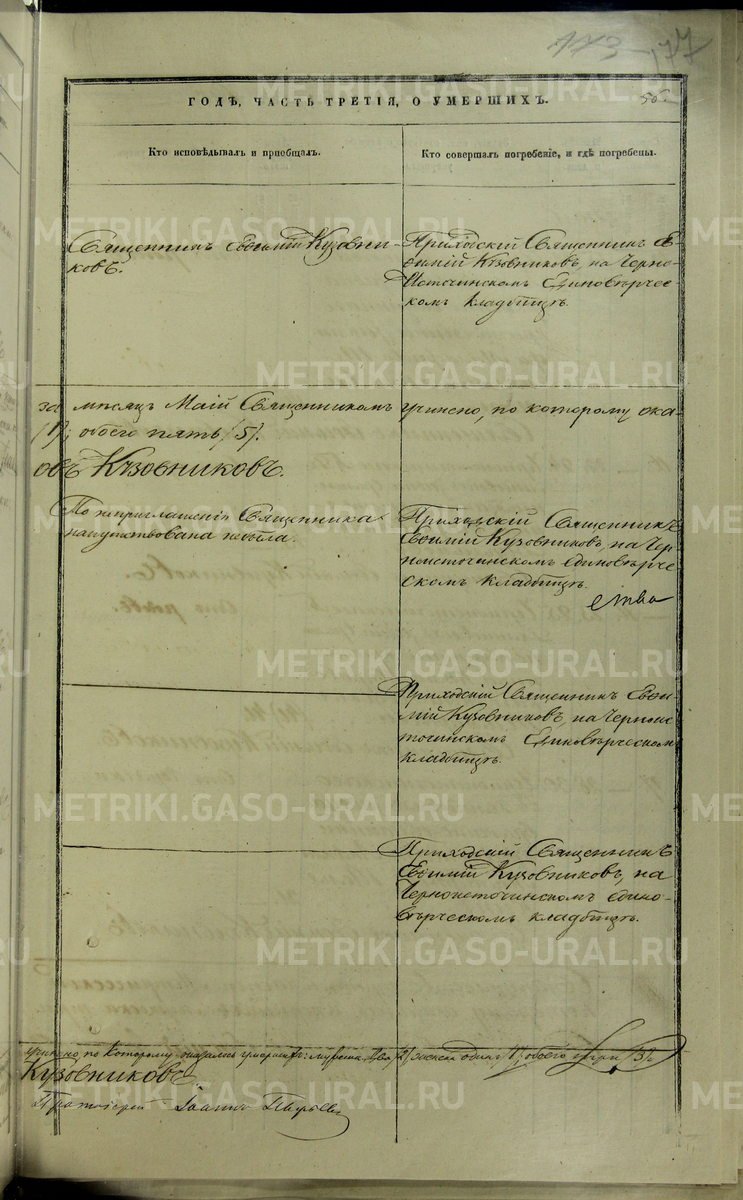 173 177
ГОДѢ, ЧАСТЬ ТРЕТІЯ, О УМЕРШИХЪ.
56.
Кто исповѣдывалъ и пріобщалъ.
Кто совершалъ погребеніе, и гдѣ погребены.
Священникъ Евѳимій Кузовни-
ковъ.
Приходскій Священникъ Ев-
ѳимій Кузовниковъ, на Черно-
Источинскомъ Единовѣрчес-
комъ кладбищѣ.
за мѣсяцъ Маій Священникомъ учинено, по которому ока-
/1/; обоего пять /5/.
овъ Кузовниковъ.
По неприглашенію Священника
напутствована небыла.
Приходскій Священникъ
Евѳимій Кузовниковъ, на Чер-
ноисточинскомъ единовѣрче-
скомъ кладбищѣ.
ства
Приходскій Священникъ Евѳи-
мій Кузовниковъ, на Черноис-
точинскомъ Единовѣрческомъ
кладбищѣ.
Приходскій Священникъ
Евѳимій Кузовниковъ, на
Черноисточинскомъ едино-
вѣрческомъ кладбищѣ.
учинено, по которому оказалось умершихъ: мужеска два /2/ женска одинъ /1/ обоего три /3/.
Кузовниковъ.
Протоіерей Іоаннъ
METRIKI.GASO-URAL.RU